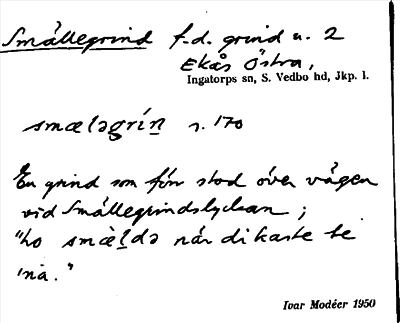 Smållegrind f.d. grind n. 2
Ekås Östra,
Ingatorps sn, S. Vedbo hd, Jkp. l.
smæləgrín s. 170
En grind som förr stod över vägen
vid Smållegrindslyckan ;
"ho smæ̀ldə när di kaste te
'na."
Ivar Modéer 1950